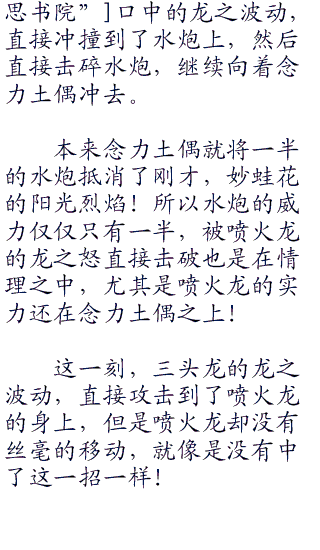 思书院”]口中的龙之波动，
直接冲撞到了水炮上，然后
直接击碎水炮，继续向着念
力土偶冲去。
本来念力土偶就将一半
的水炮抵消了刚才，妙蛙花
的阳光烈焰！所以水炮的威
力仅仅只有一半，被喷火龙
的龙之怒直接击破也是在情
理之中，尤其是喷火龙的实
力还在念力土偶之上！
这一刻，三头龙的龙之
波动，直接攻击到了喷火龙
的身上，但是喷火龙却没有
丝毫的移动，就像是没有中
了这一招一样！